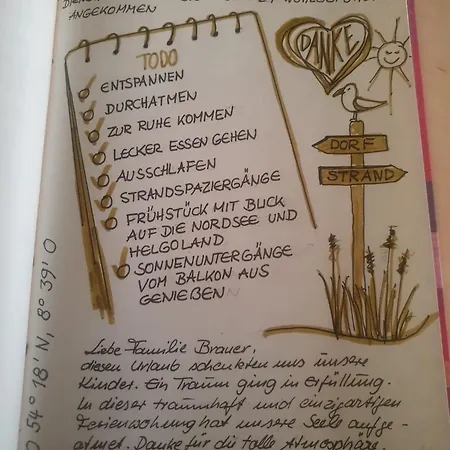 ANGEKOMMEN
TODO
ENTSPANNEN
DURCHATMEN
ZUR RUHE KOMMEN
LECKER ESSEN GEHEN
AUSSCHLAFEN
STRANDSPAZIERGÄNGE
FRÜHSTÜCK MIT BLICK
AUF DIE NORDSEE UND
HELGOLAND
SONNENUNTERGÄNGE
VOM BALKON AUS
GENIEßEN
DANKE
DORF
STRAND
54° 18' N, 8° 39' O
Liebe Familie Brauer,
diesen Urlaub schenkten uns unsere
Kinder. Ein Traum ging in Erfüllung.
In dieser traumhaft und einzigartigen
Ferienwohnung hat unsere Seele aufge-
atmet. Danke für die tolle Atmosphäre.